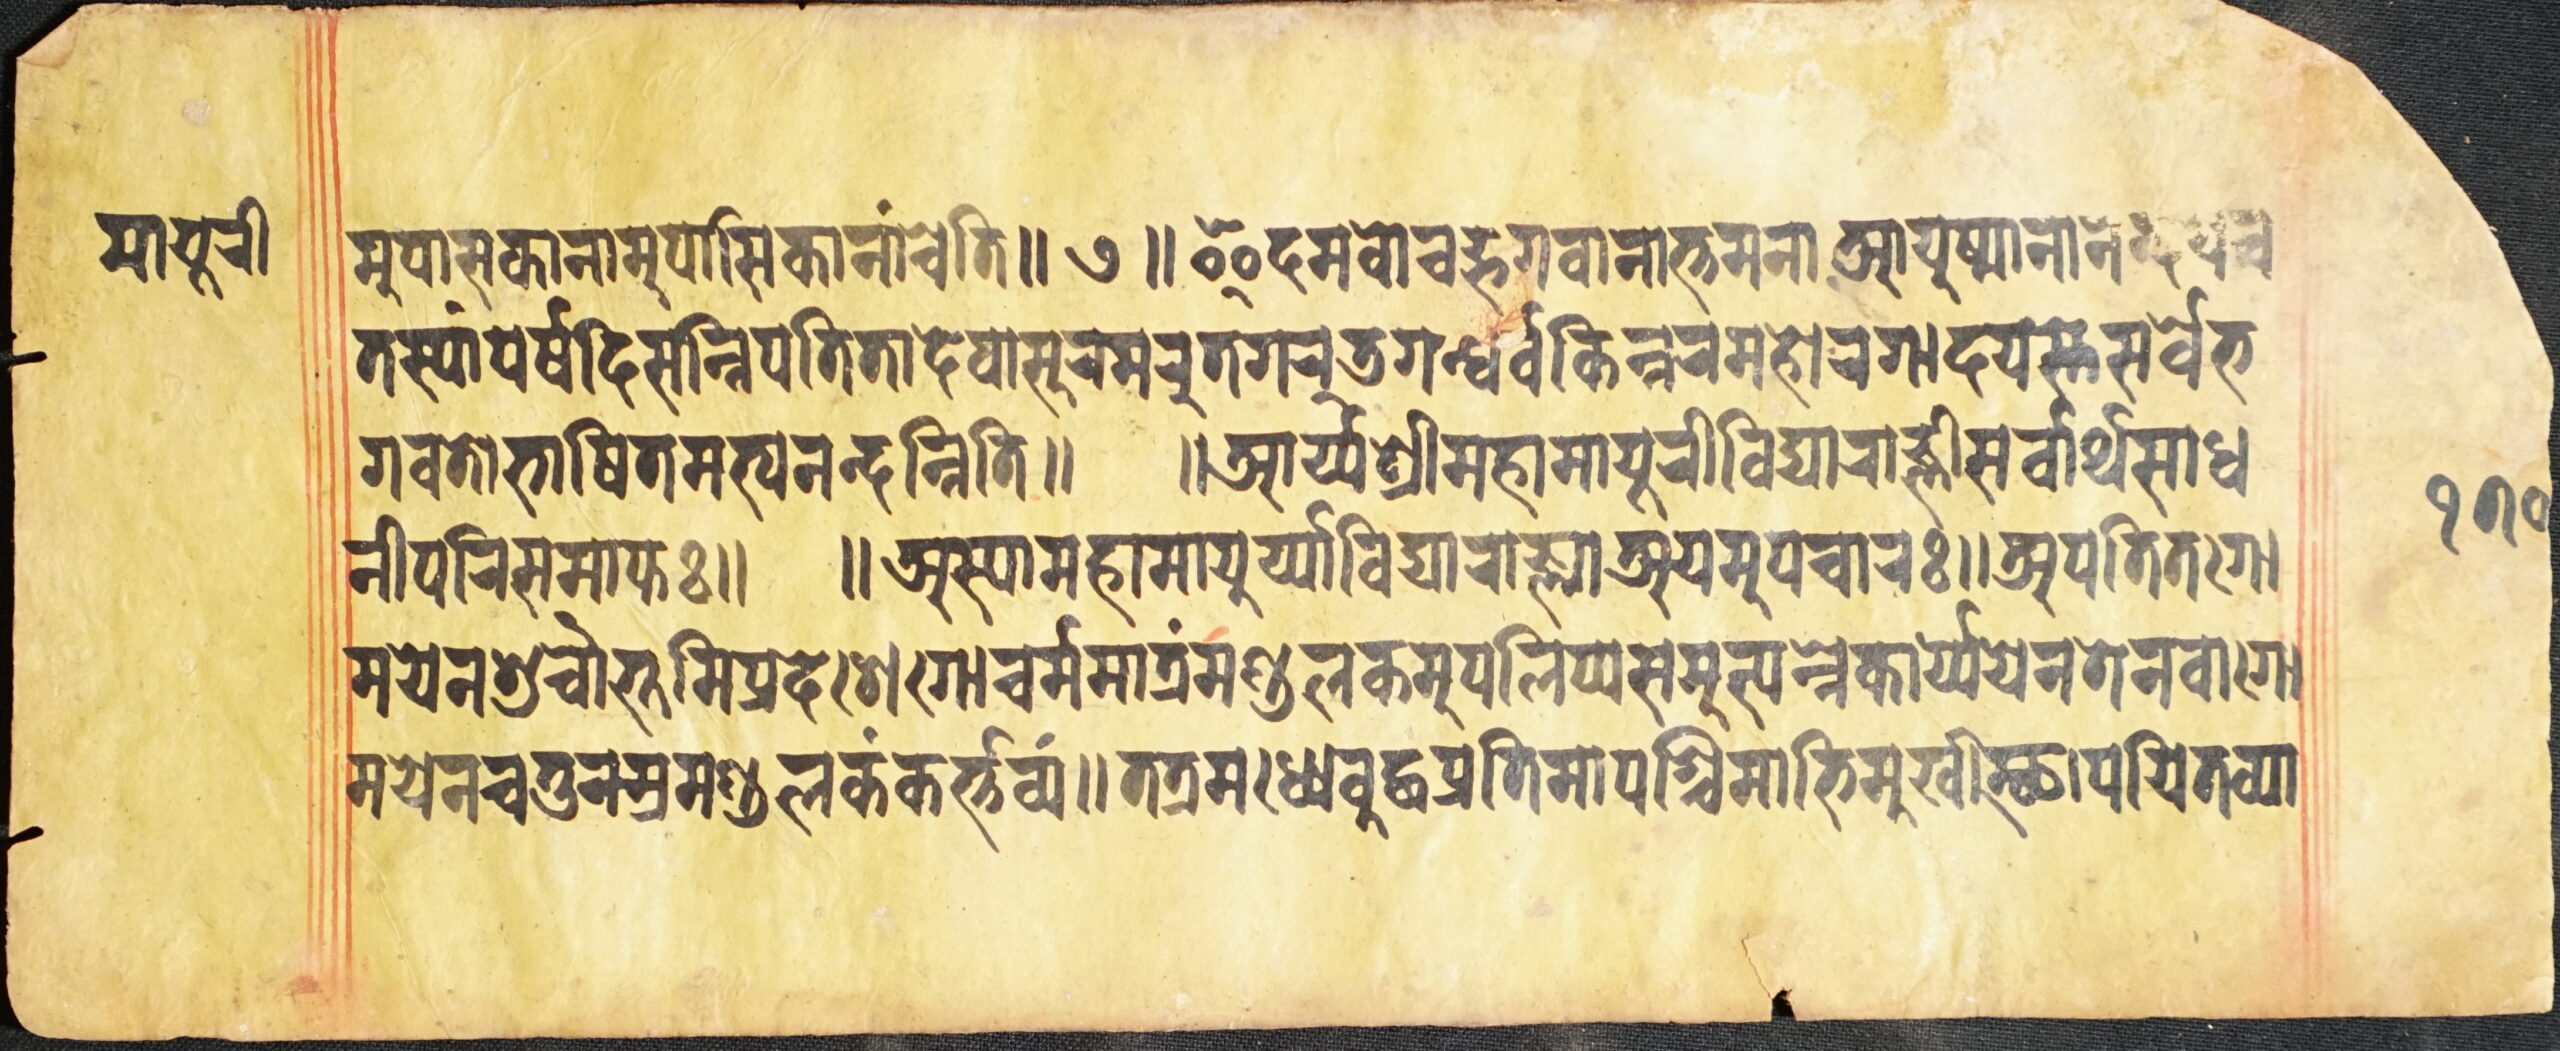 मायूरी
मुपासकानामुपासिकानांचेति॥ ७ ॥ इदमवोचद्भगवानात्तमनाआयुष्मानानन्दयेच
तस्यांपर्षदिसन्निपतितादेवासुरमरुतगरुडगन्धर्वकिन्नरमहोरगादयस्तेसर्वेभ
गवतोभाषितमभ्यनन्दन्निति॥ ॥आर्य्यश्रीमहामायूरीविद्याराज्ञीसर्वार्थसाध
नीपरिसमाप्तः॥ ॥अस्यामहामायुर्य्याविद्याराज्ञ्याअयमुपचारः॥अपतितगो
मयेनशुचौभूमिप्रदेशेगोचर्ममात्रंमण्डलकमुपलिप्यसमुत्पन्नेकार्य्येयेनतेनवागो
मयेनचतुरस्रमण्डलकंकर्त्तव्यं॥तत्रमध्येबुद्धप्रतिमापश्चिमाभिमुखीस्थापयितव्या
११०